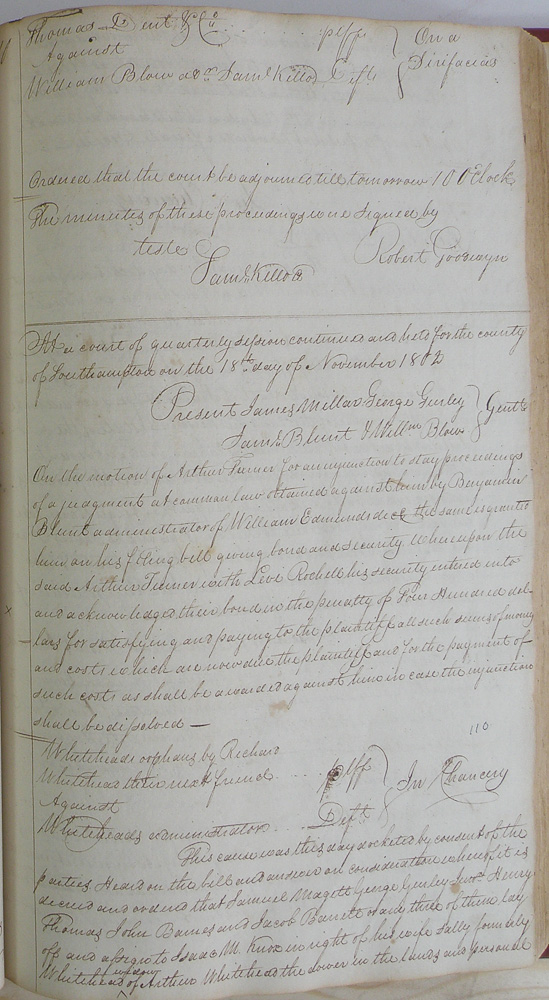 Thomas Dent & Co .... plff } On a
Against
William Blow adr. Saml Kello Defts { Sirifacias
Ordered that the court be adjourned till tomorrow 10 O Clock
The minutes of these proceedings were signed by
teste Robert Goodwyn
Saml Kello Ck
At a court of quarterly session continued and held for the county
of Southampton on the 18th day of November 1802
Present James Millar George Gurley } Gents
Saml Blunt & Willm Blow
On the motion of Arthur Turner for an injunction to stay proceedings
of a judgment at common law obtained against him by Benjamin
Blunt administrator of William Edmunds decd the same is granted
him on his filing bill giving bond and security. Whereupon the
said Arthur Turner with Levi Rochell his security entered into
and acknowledged their bond in the penalty of Four Hundred dol-
lars for satisfying and paying to the plaintiff all such sums of money
and costs which are now due the plaintiff and for the payment of
such costs as shall be awarded against him in case the injunction
shall be dissolved —
110
Whiteheads orphans by Richard
Whitehead their next friend .... plff } In Chancery
Against
Whiteheads administrator .. Deft
This cause was this day docketed by consent of the
parties Heard on the bill and answer on consideration whereof it is
decreed and ordered that Samuel Magett George Gurley Junr Henry
Thomas John Barnes and Jacob Barrett or any three of them lay
off and assign to Isaac M. in right of his wife Sally formerly
widow
Whitehead of Arthur Whitehead the dower in the lands and personal